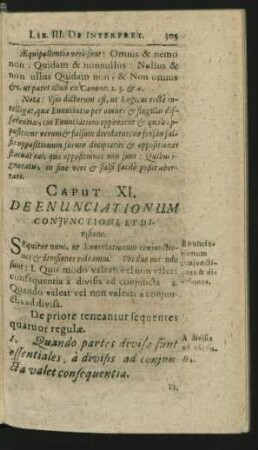 LIB. III. DE INTERPRET. 305
Æquipollentia verò sunt: Omnis & nemo
non: Quidam & nonnullus: Nullus &
non ullus Quidam non, & Non omnis
&c. ut patet illud ex Canone. 2. 3. & 4.
Nota: Usus doctorum est, ut Logicus rectè in-
telligat, quæ Enunciatio per omnes & singulas dif-
ferentias, cui Enunciationi opponatur & quali op-
positione verum & falsum dividatur, ne forsan fal-
sis oppositionum formis decipiatur & oppositiones
statuat eas, quæ oppositiones non sunt: Quibus i-
gnoratis, in sine veri & falsi facile posset aber-
rari.
CAPUT XI.
DE ENUNCIATIONUM
CONJUNCTIONE, ET DI-
visione.
Sequitur nunc, ut Enunciationum conjunctio-
nes & divisiones videamus. Ubi duo no-
sunt: 1. Quo modo valeat vel non valeat
consequentia à divisis ad conjuncta 2.
Quando valeat vel non valeat à conjun-
ctis ad divisa.
Enuncia-
tionum
conjuncti-
ones & di-
visiones.
De priore teneantur sequentes
quatuor regulæ.
1. Quando partes divisæ sunt
essentiales, à divisis ad conjun-
cta valet consequentia.
A divisis
ad
Ut,